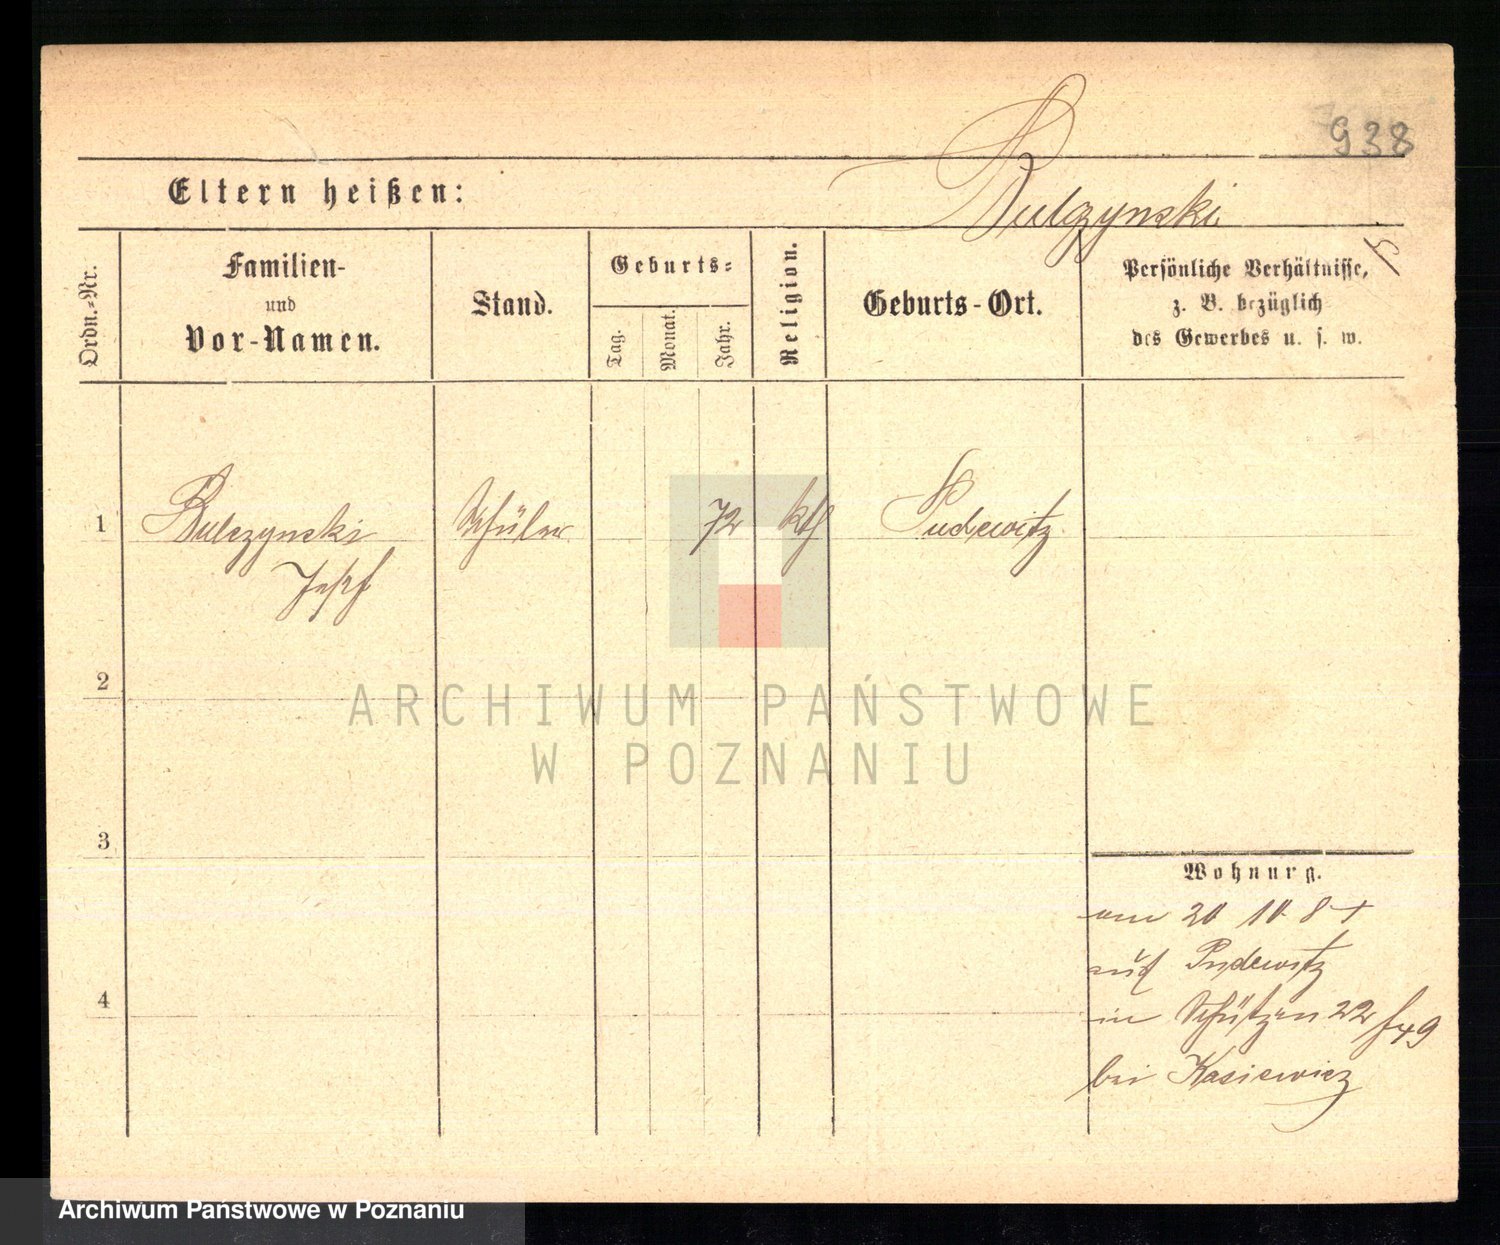 938
Eltern heißen:
Bulczynski
Ordn.-Nr.
Familien-
und
Vor-Namen.
Stand.
Geburts-
Tag.
Monat.
Jahr.
Religion.
Geburts-Ort.
Persönliche Verhältnisse,
z. B. bezüglich
des Gewerbes u. s. w.
1
Bulczynski
Schüler
72
kth
Pudewitz
Josef
2
ARCHIWUM PAŃSTWOWE
W POZNANIU
3
Wohnung.
am 20 10 84
aus Pudewitz
in Schützen 22
bei Kasiewicz
4
Archiwum Państwowe w Poznaniu